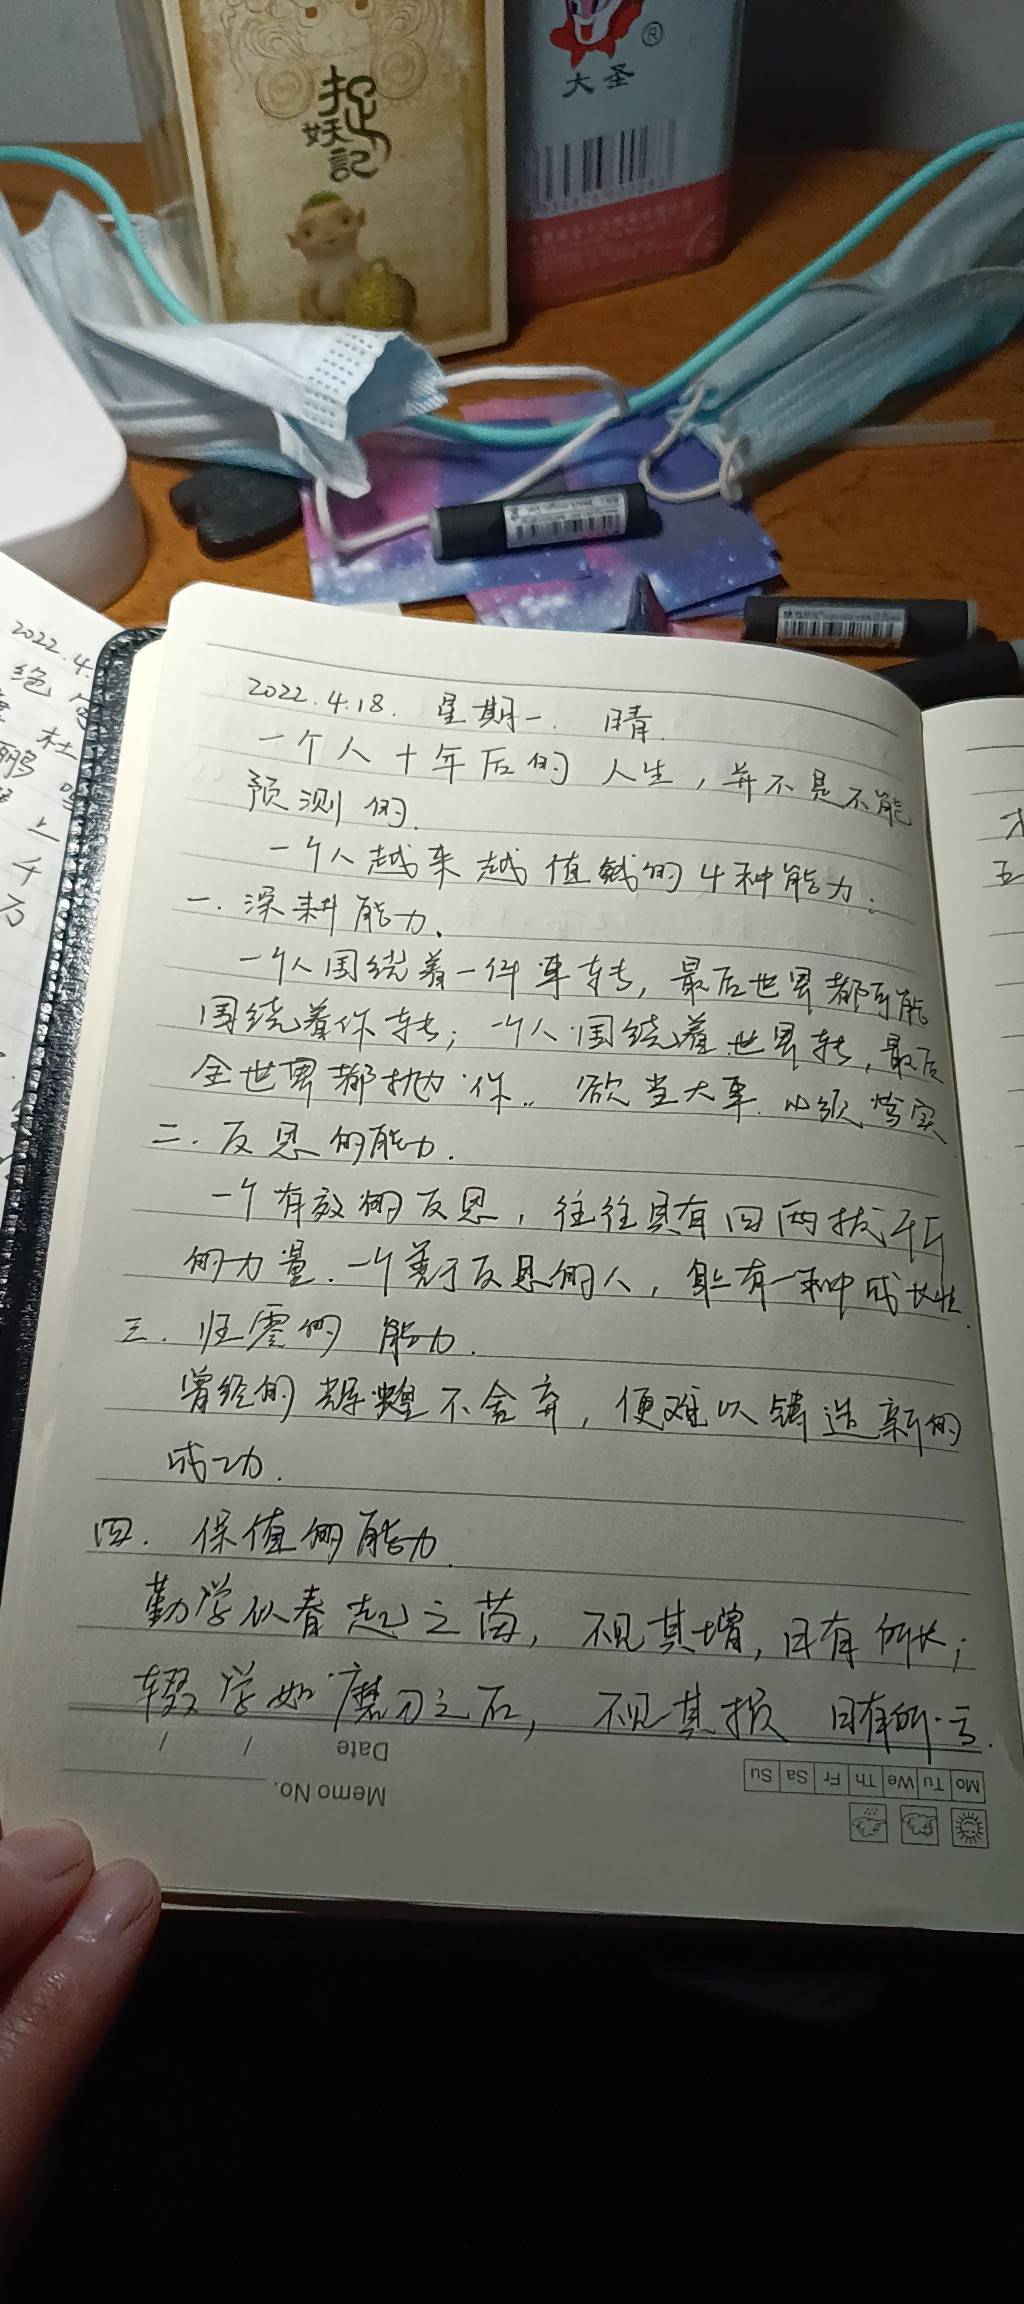 捉
妖
記
大圣
®
2022.4.
绝
杜
鹏
上
千
万
2022.4.18. 星期一. 晴.
一个人十年后的 人生，并不是不能
预测的.
一个人越来越值钱的4种能力.
一.深耕能力.
一个人围绕着一件事转，最后世界都可能
围绕着你转；一个人围绕着世界转，最后
全世界都抛 你.. 欲当大事. 必须笃实
二.反思的能力.
一个有效的反思，往往具有四两拔千斤
的力量.一个善于反思的人，具有一种成长性.
三.归零的能力.
曾经的辉煌不舍弃，便难以铸造新的
成功.
四.保值的能力.
勤学似春起之苗，不见其增，日有所长；
辍学如磨刀之石，不见其损 日有所亏.
Date / /
Memo No.
Mo Tu We Th Fr Sa Su
五